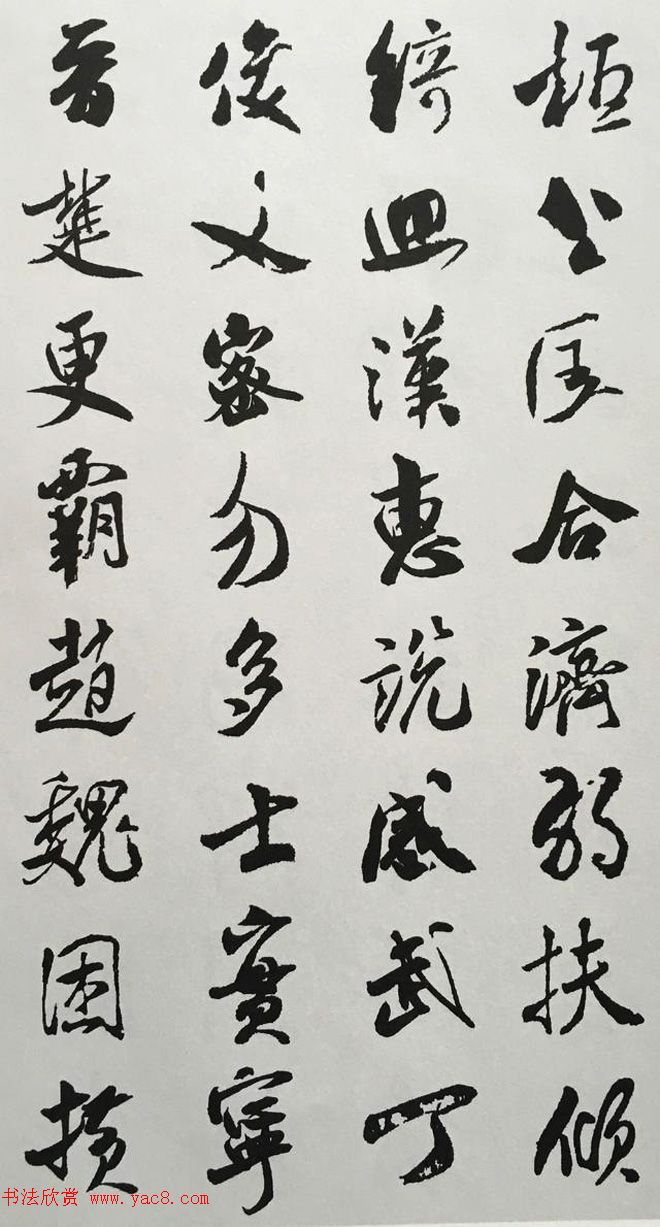 桓公匡合濟弱扶傾
綺迴漢惠說感武丁
俊乂密勿多士寔寧
晉楚更霸趙魏困橫
书法欣赏 www.yac8.com